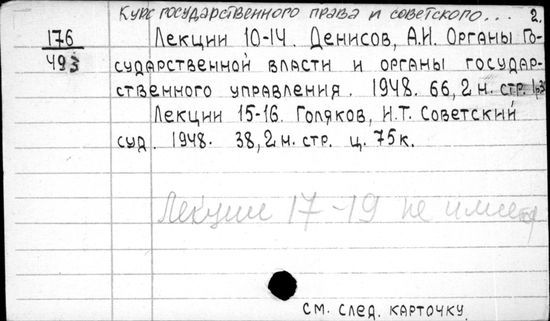 Курс государственного права и советского... 2.
176
493
Лекции 10-14. Денисов, А.И. Органы Го-
сударственной власти и органы государ-
ственного управления. 1948. 66, 2 н. стр.
Лекции 15-16. Голяков, И.Т. Советский
суд. 1948. 38, 2 н. стр. ц. 75 к.
Лекции 17-19 не имеет
см. след. карточку